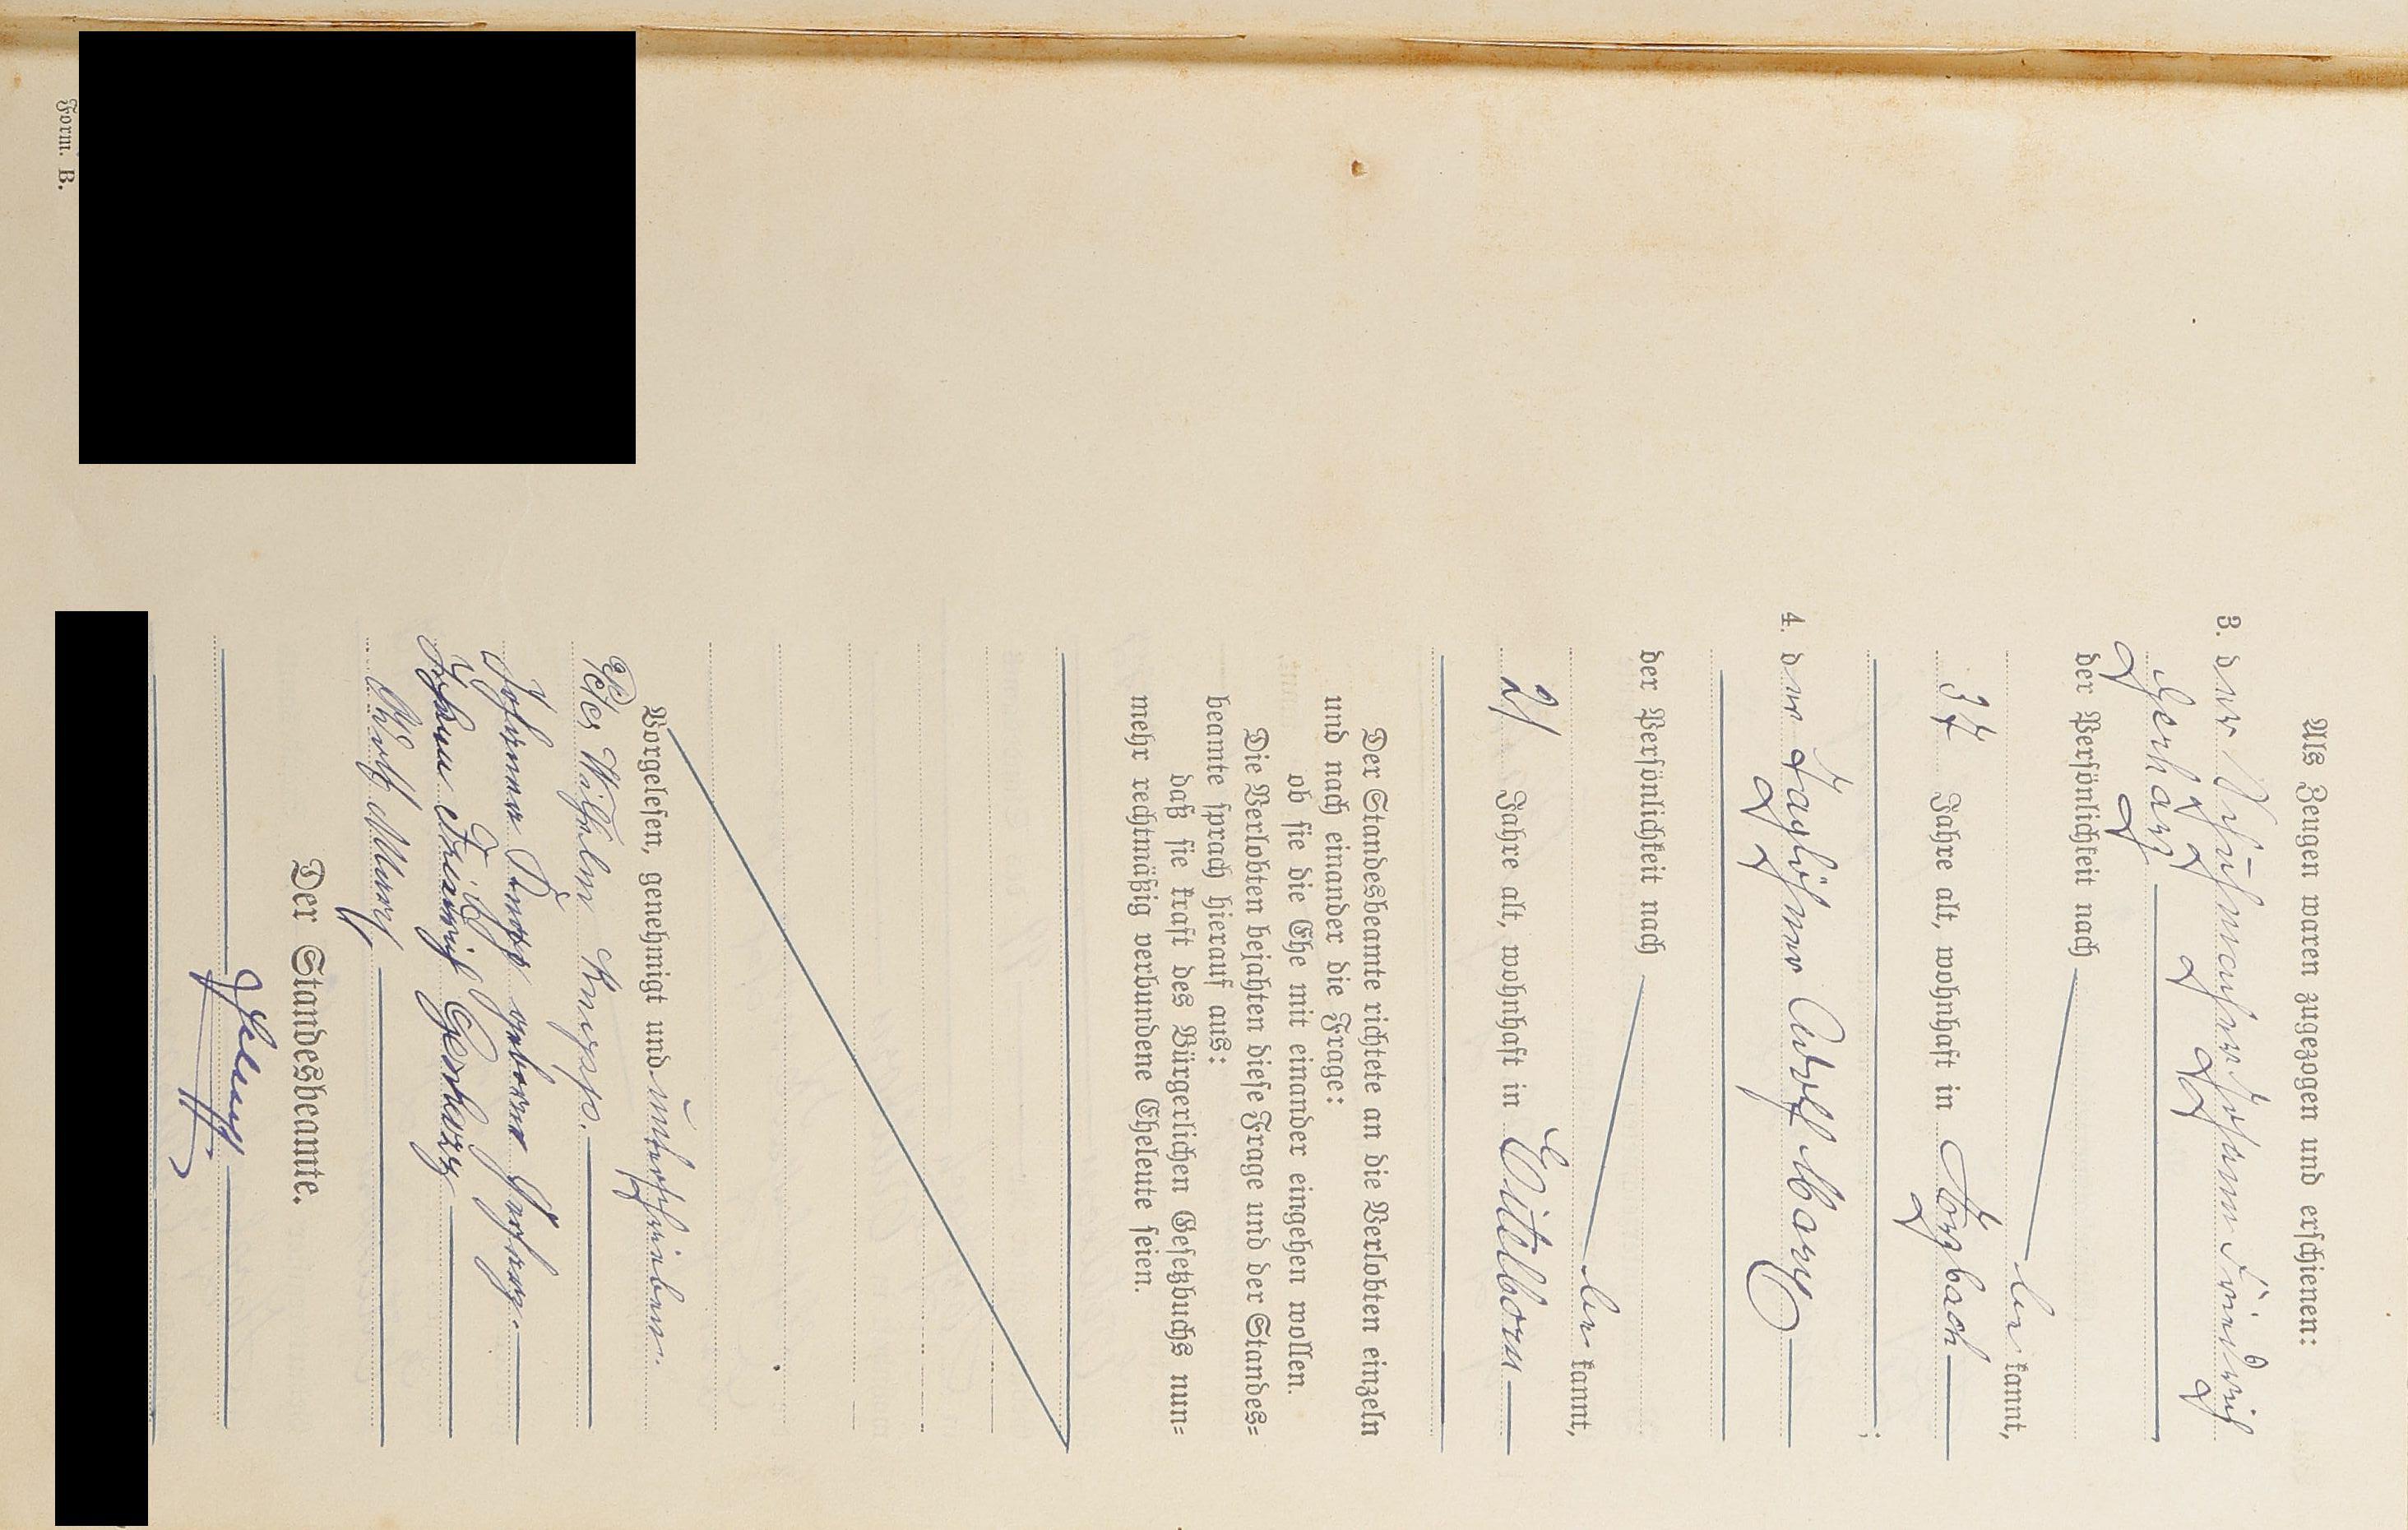 Als Zeugen waren zugezogen und erschienen:
3. der Schuhmacher Johann Friedrich
Gerharz
der Persönlichkeit nach
be kannt,
37 Jahre alt, wohnhaft in Arzbach
;
4. der Taglöhner Adolf Marx
der Persönlichkeit nach
be kannt,
21 Jahre alt, wohnhaft in Eitelborn
Der Standesbeamte richtete an die Verlobten einzeln
und nach einander die Frage:
ob sie die Ehe mit einander eingehen wollen.
Die Verlobten bejahten diese Frage und der Standes=
beamte sprach hierauf aus:
daß sie kraft des Bürgerlichen Gesetzbuchs nun=
mehr rechtmäßig verbundene Eheleute seien.
Vorgelesen, genehmigt und unterschrieben.
Peter Wilhelm Knopp.
Knopp geborene
Johann Friedrich Gerharz
Adolf Marx
Der Standesbeamte.
Form. B.